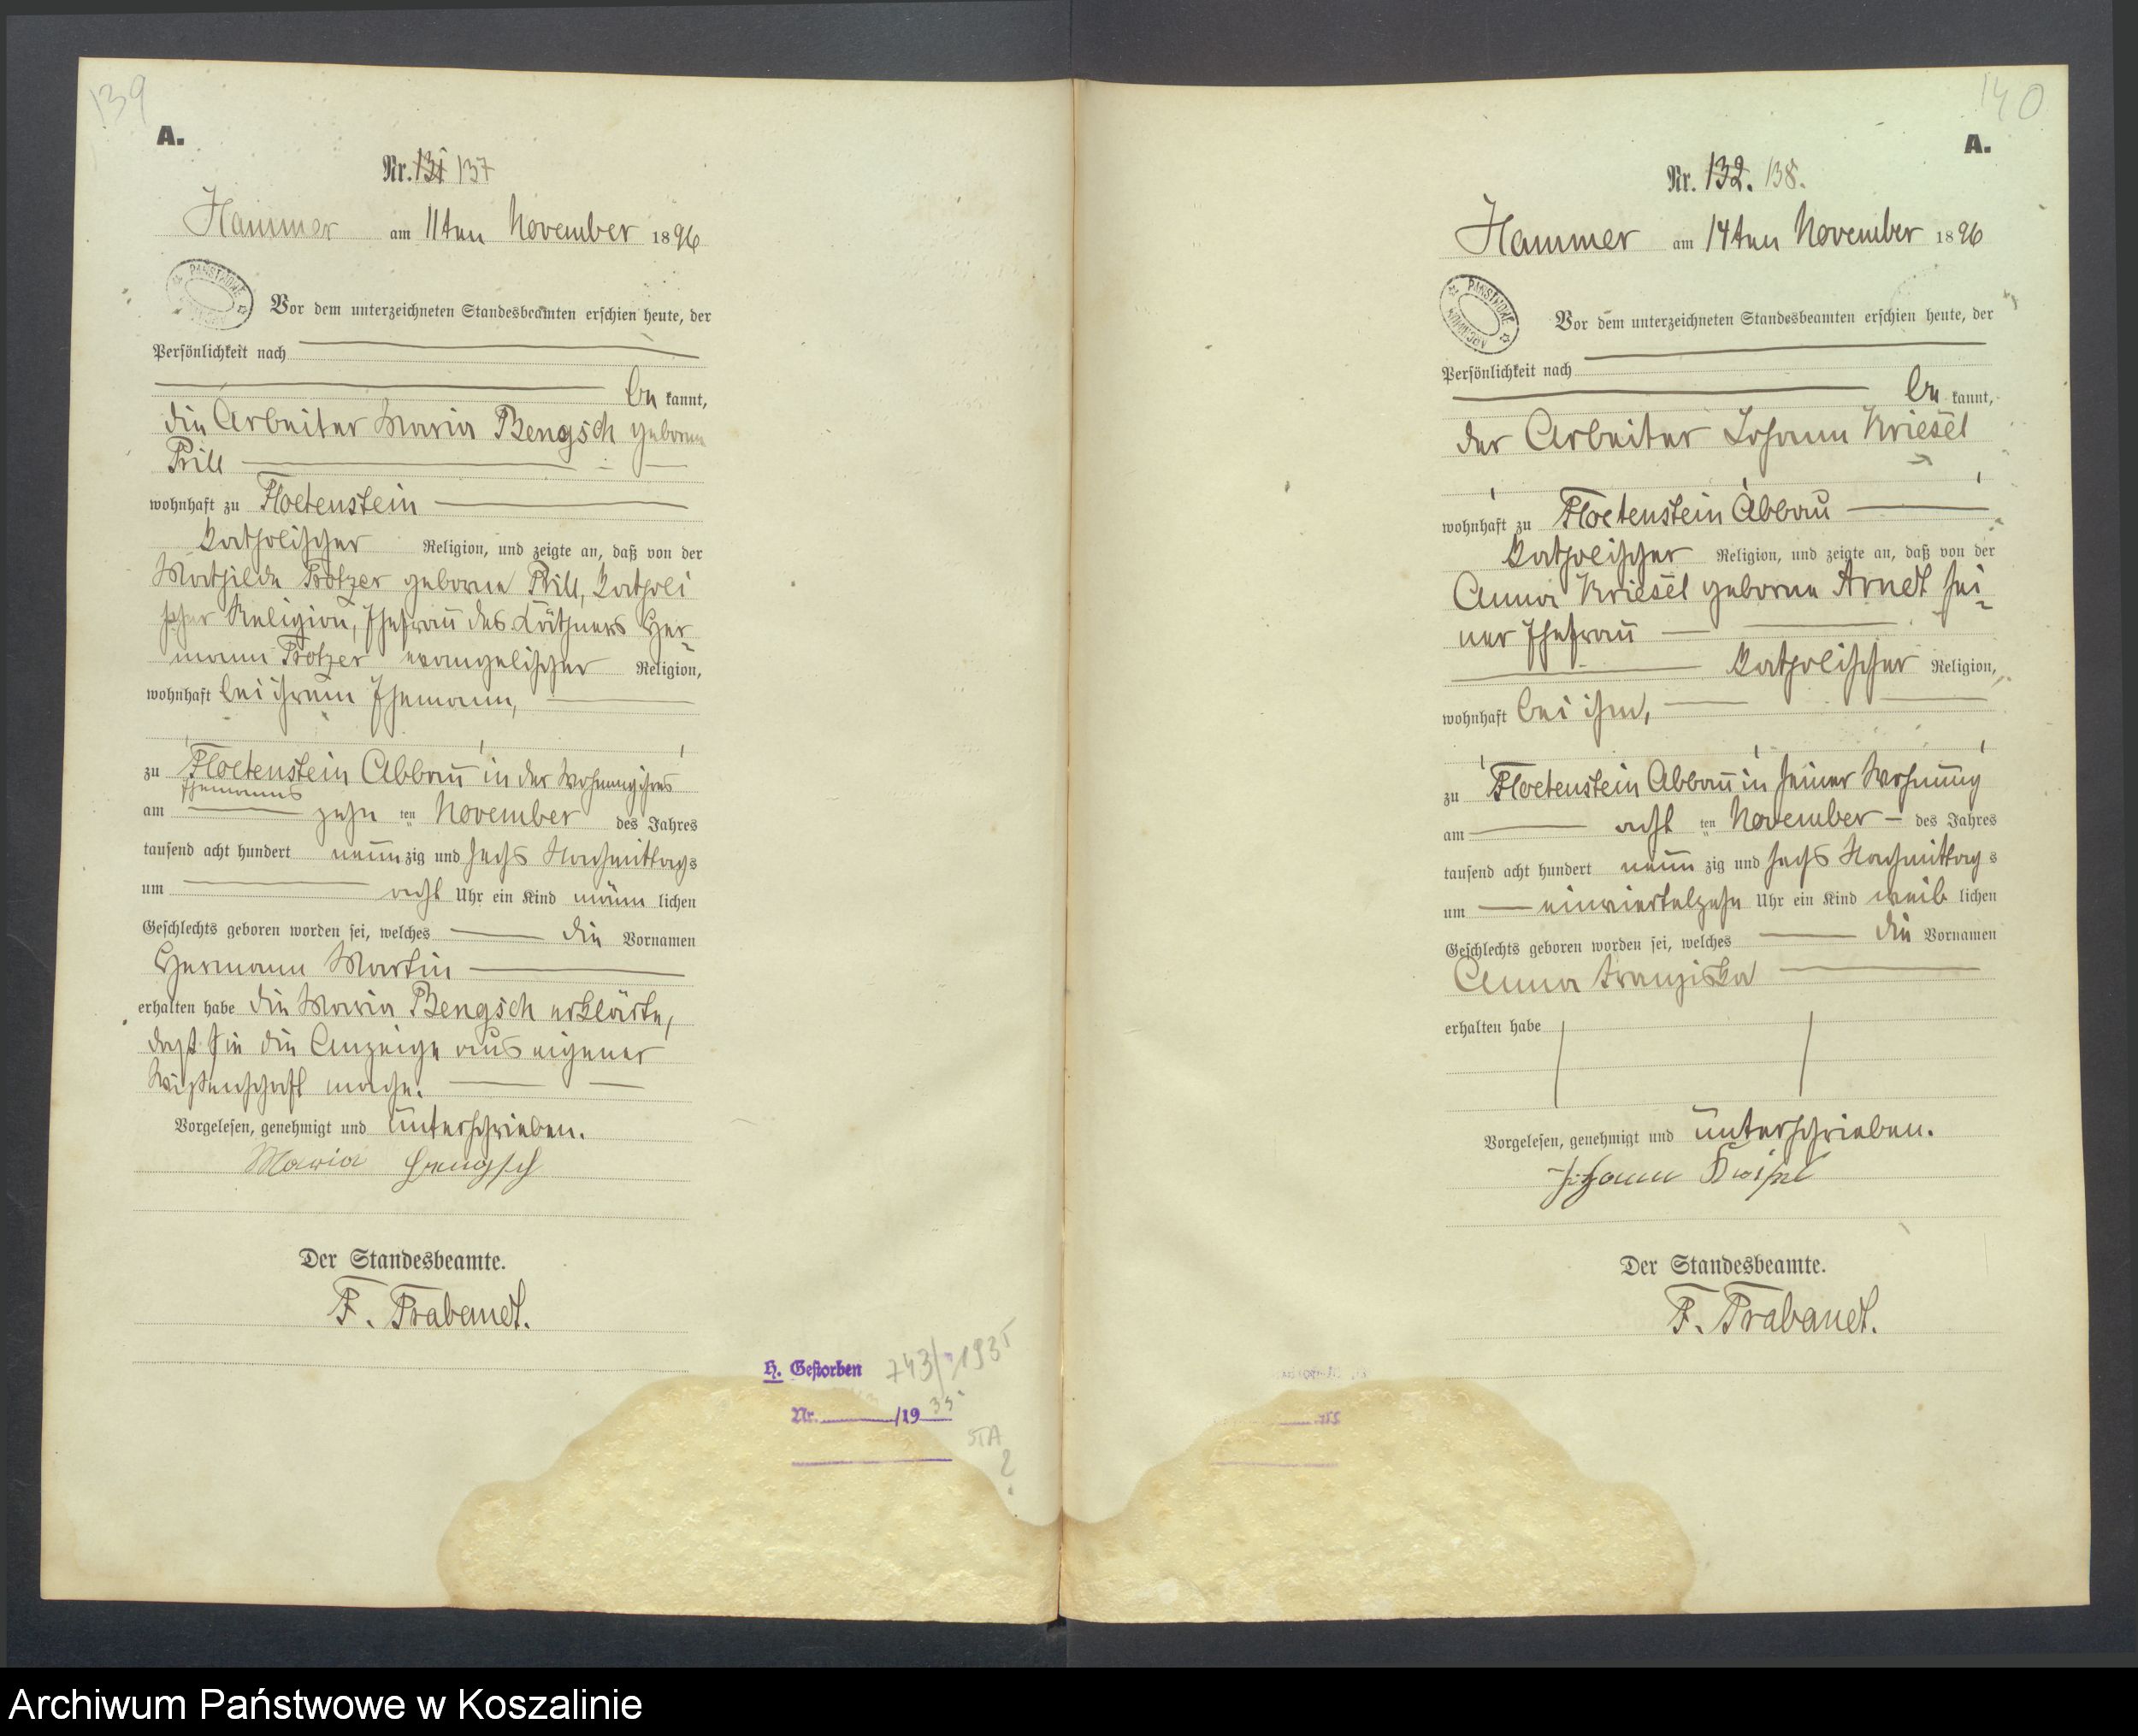 139
A.
Nr. 131 137
Hammer am 11ten November 1896
PAŃSTWOWE
Vor dem unterzeichneten Standesbeamten erschien heute, der
Persönlichkeit nach
be kannt,
die Arbeiter Maria Bengsch geborene
Prill
wohnhaft zu Floetenstein
katholischer Religion, und zeigte an, daß von der
Mathilde Protzer geborne Prill, katholi
scher Religion, Ehefrau des Käthners Her
mann Protzer evangelischer Religion,
wohnhaft bei ihrem Ehemann,
zu Floetenstein Abbau in der Wohnung ihres
Ehemanns
am zehn ten November des Jahres
tausend acht hundert neun zig und sechs Nachmittags
um acht Uhr ein Kind männ lichen
Geschlechts geboren worden sei, welches die Vornamen
Hermann Martin
erhalten habe die Maria Bengsch erklärte,
daß sie die Anzeige aus eigener
Wissenschaft mache.
Vorgelesen, genehmigt und unterschrieben.
Maria Bengsch
Der Standesbeamte.
F. Trabandt.
H. Gestorben 743/1935
Nr. /19 35
STA
2
140
A.
Nr. 132. 138.
Hammer am 14ten November 1896
PAŃSTWOWE ARCHIWUM
Vor dem unterzeichneten Standesbeamten erschien heute, der
Persönlichkeit nach
be kannt,
der Arbeiter Johann Kriesel
wohnhaft zu Floetenstein Abbau
katholischer Religion, und zeigte an, daß von der
Anna Kriesel geborne Arndt sei
ner Ehefrau
katholischer Religion,
wohnhaft bei ihm,
zu Floetenstein Abbau in seiner Wohnung
am acht ten November des Jahres
tausend acht hundert neun zig und sechs Nachmittag s
um einviertelzehn Uhr ein Kind weib lichen
Geschlechts geboren worden sei, welches die Vornamen
Anna Franziska
erhalten habe
Vorgelesen, genehmigt und unterschrieben.
Johann
Der Standesbeamte.
F. Trabandt.
Archiwum Państwowe w Koszalinie